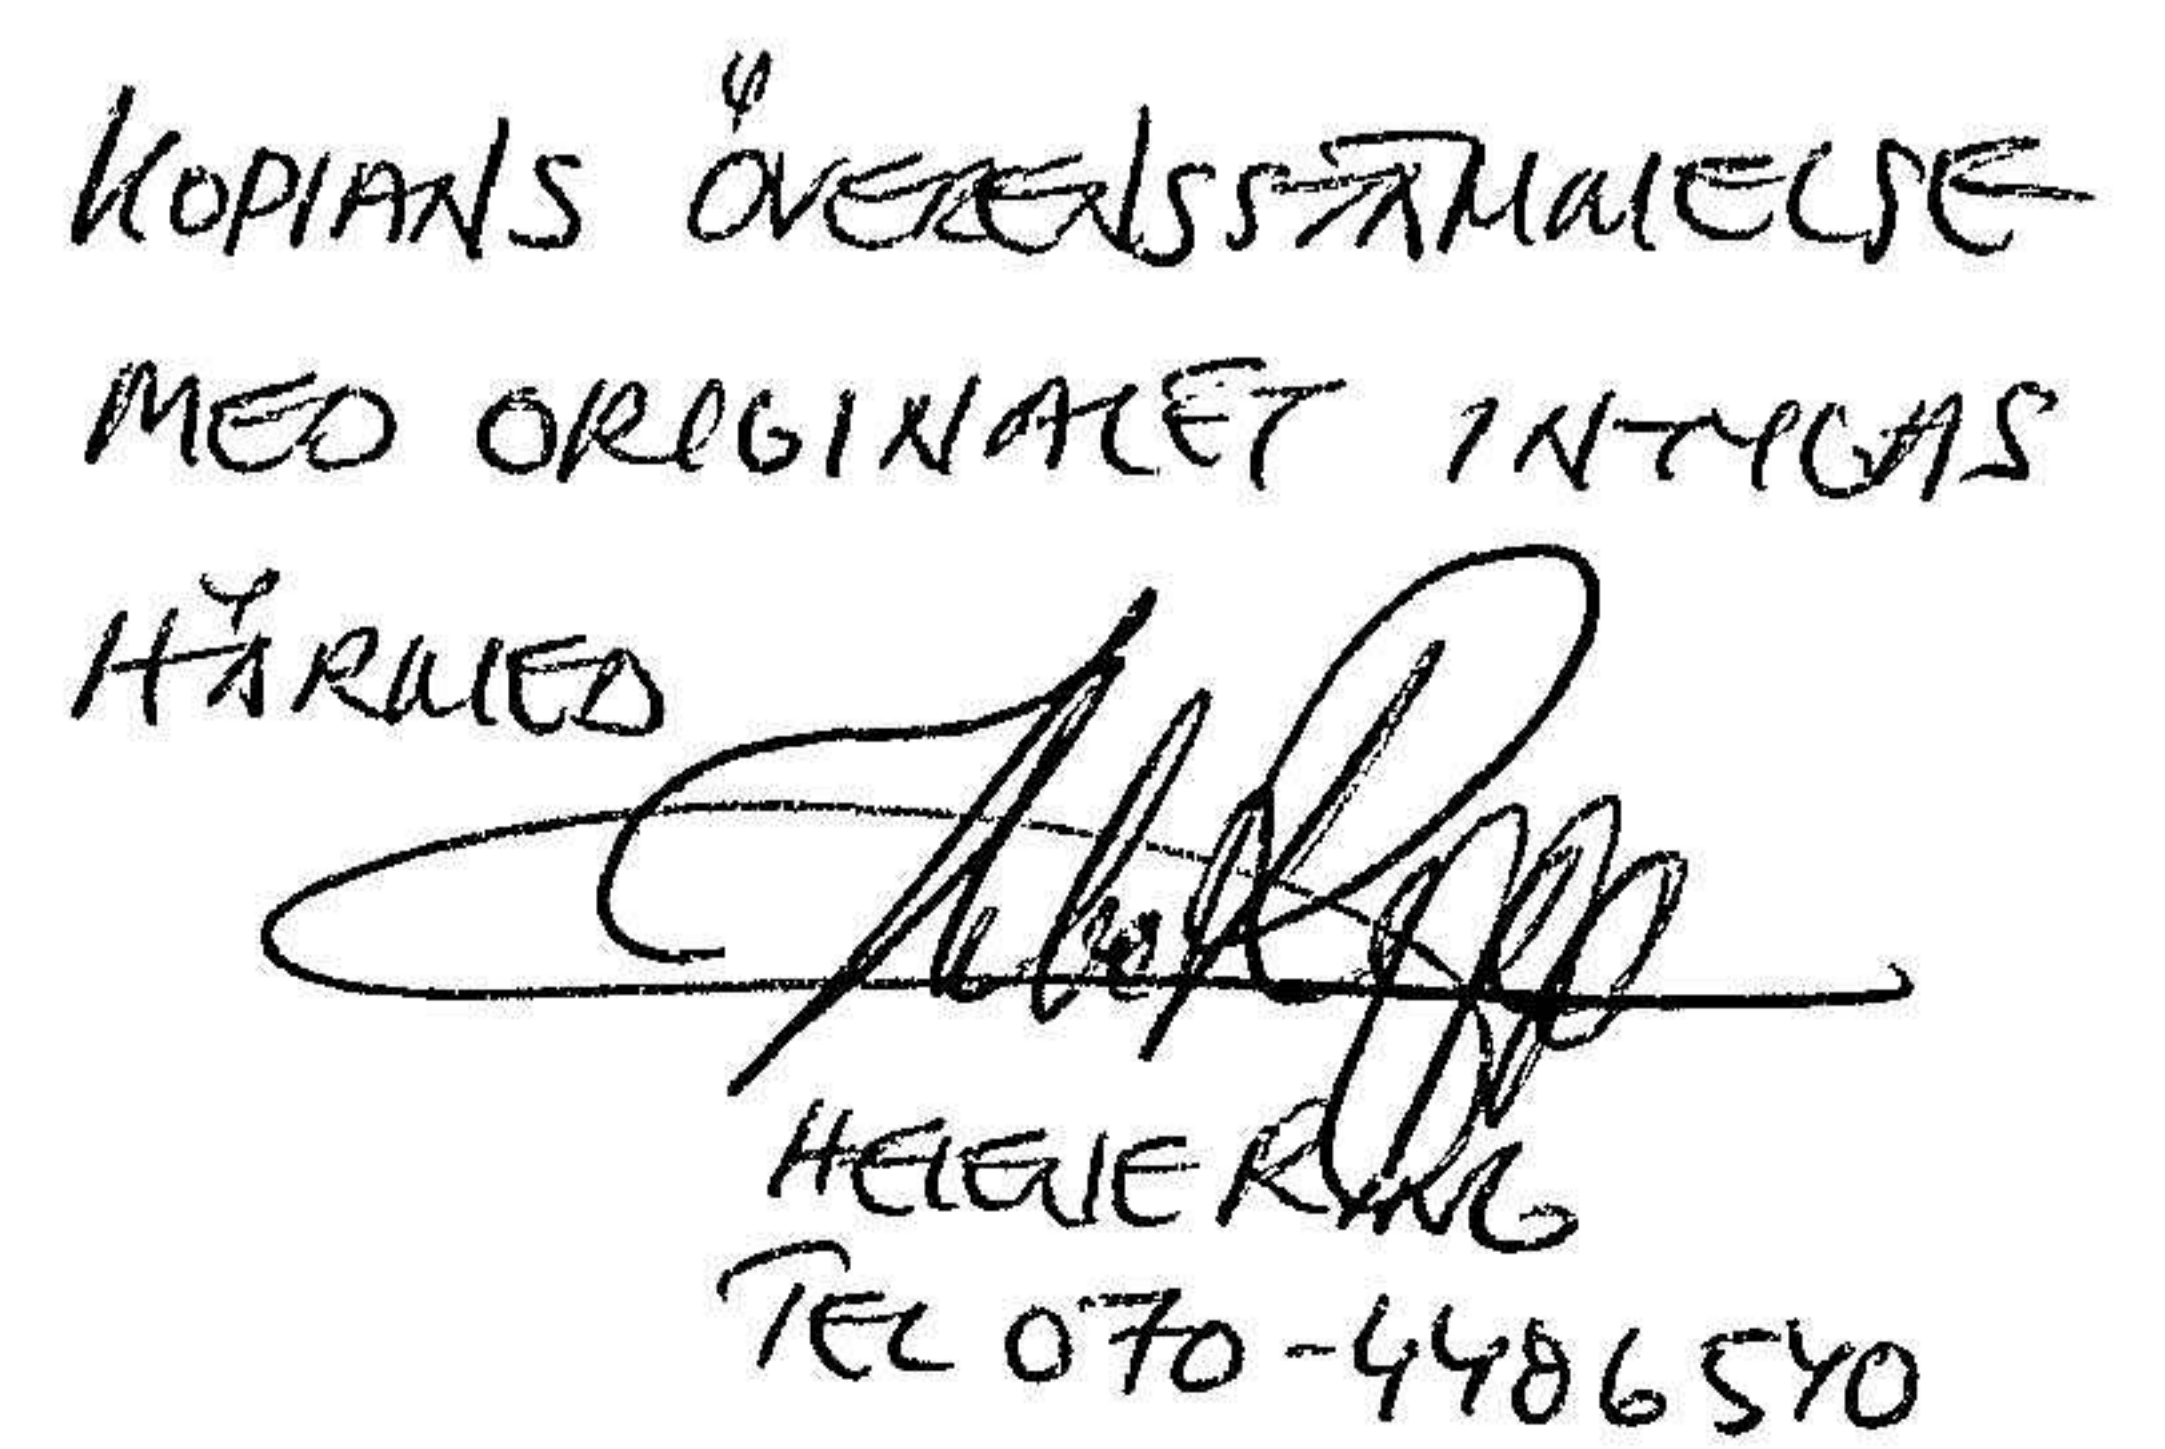 KOPIANS ÖVERENSSTÄMMELSE
MED ORIGINALET INTYGAS
HÄRMED
TEL 070-4486540